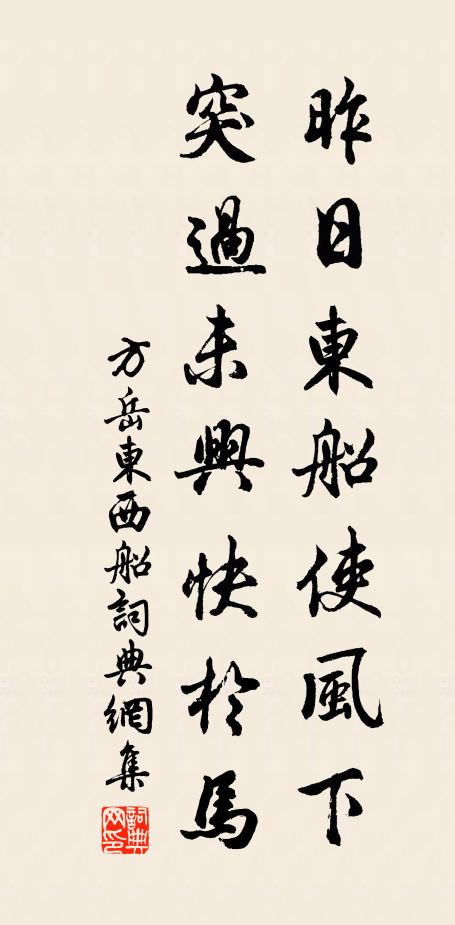 昨日東船使風下
突過未興快於馬
方岳東西船詞典網集
詞典網印